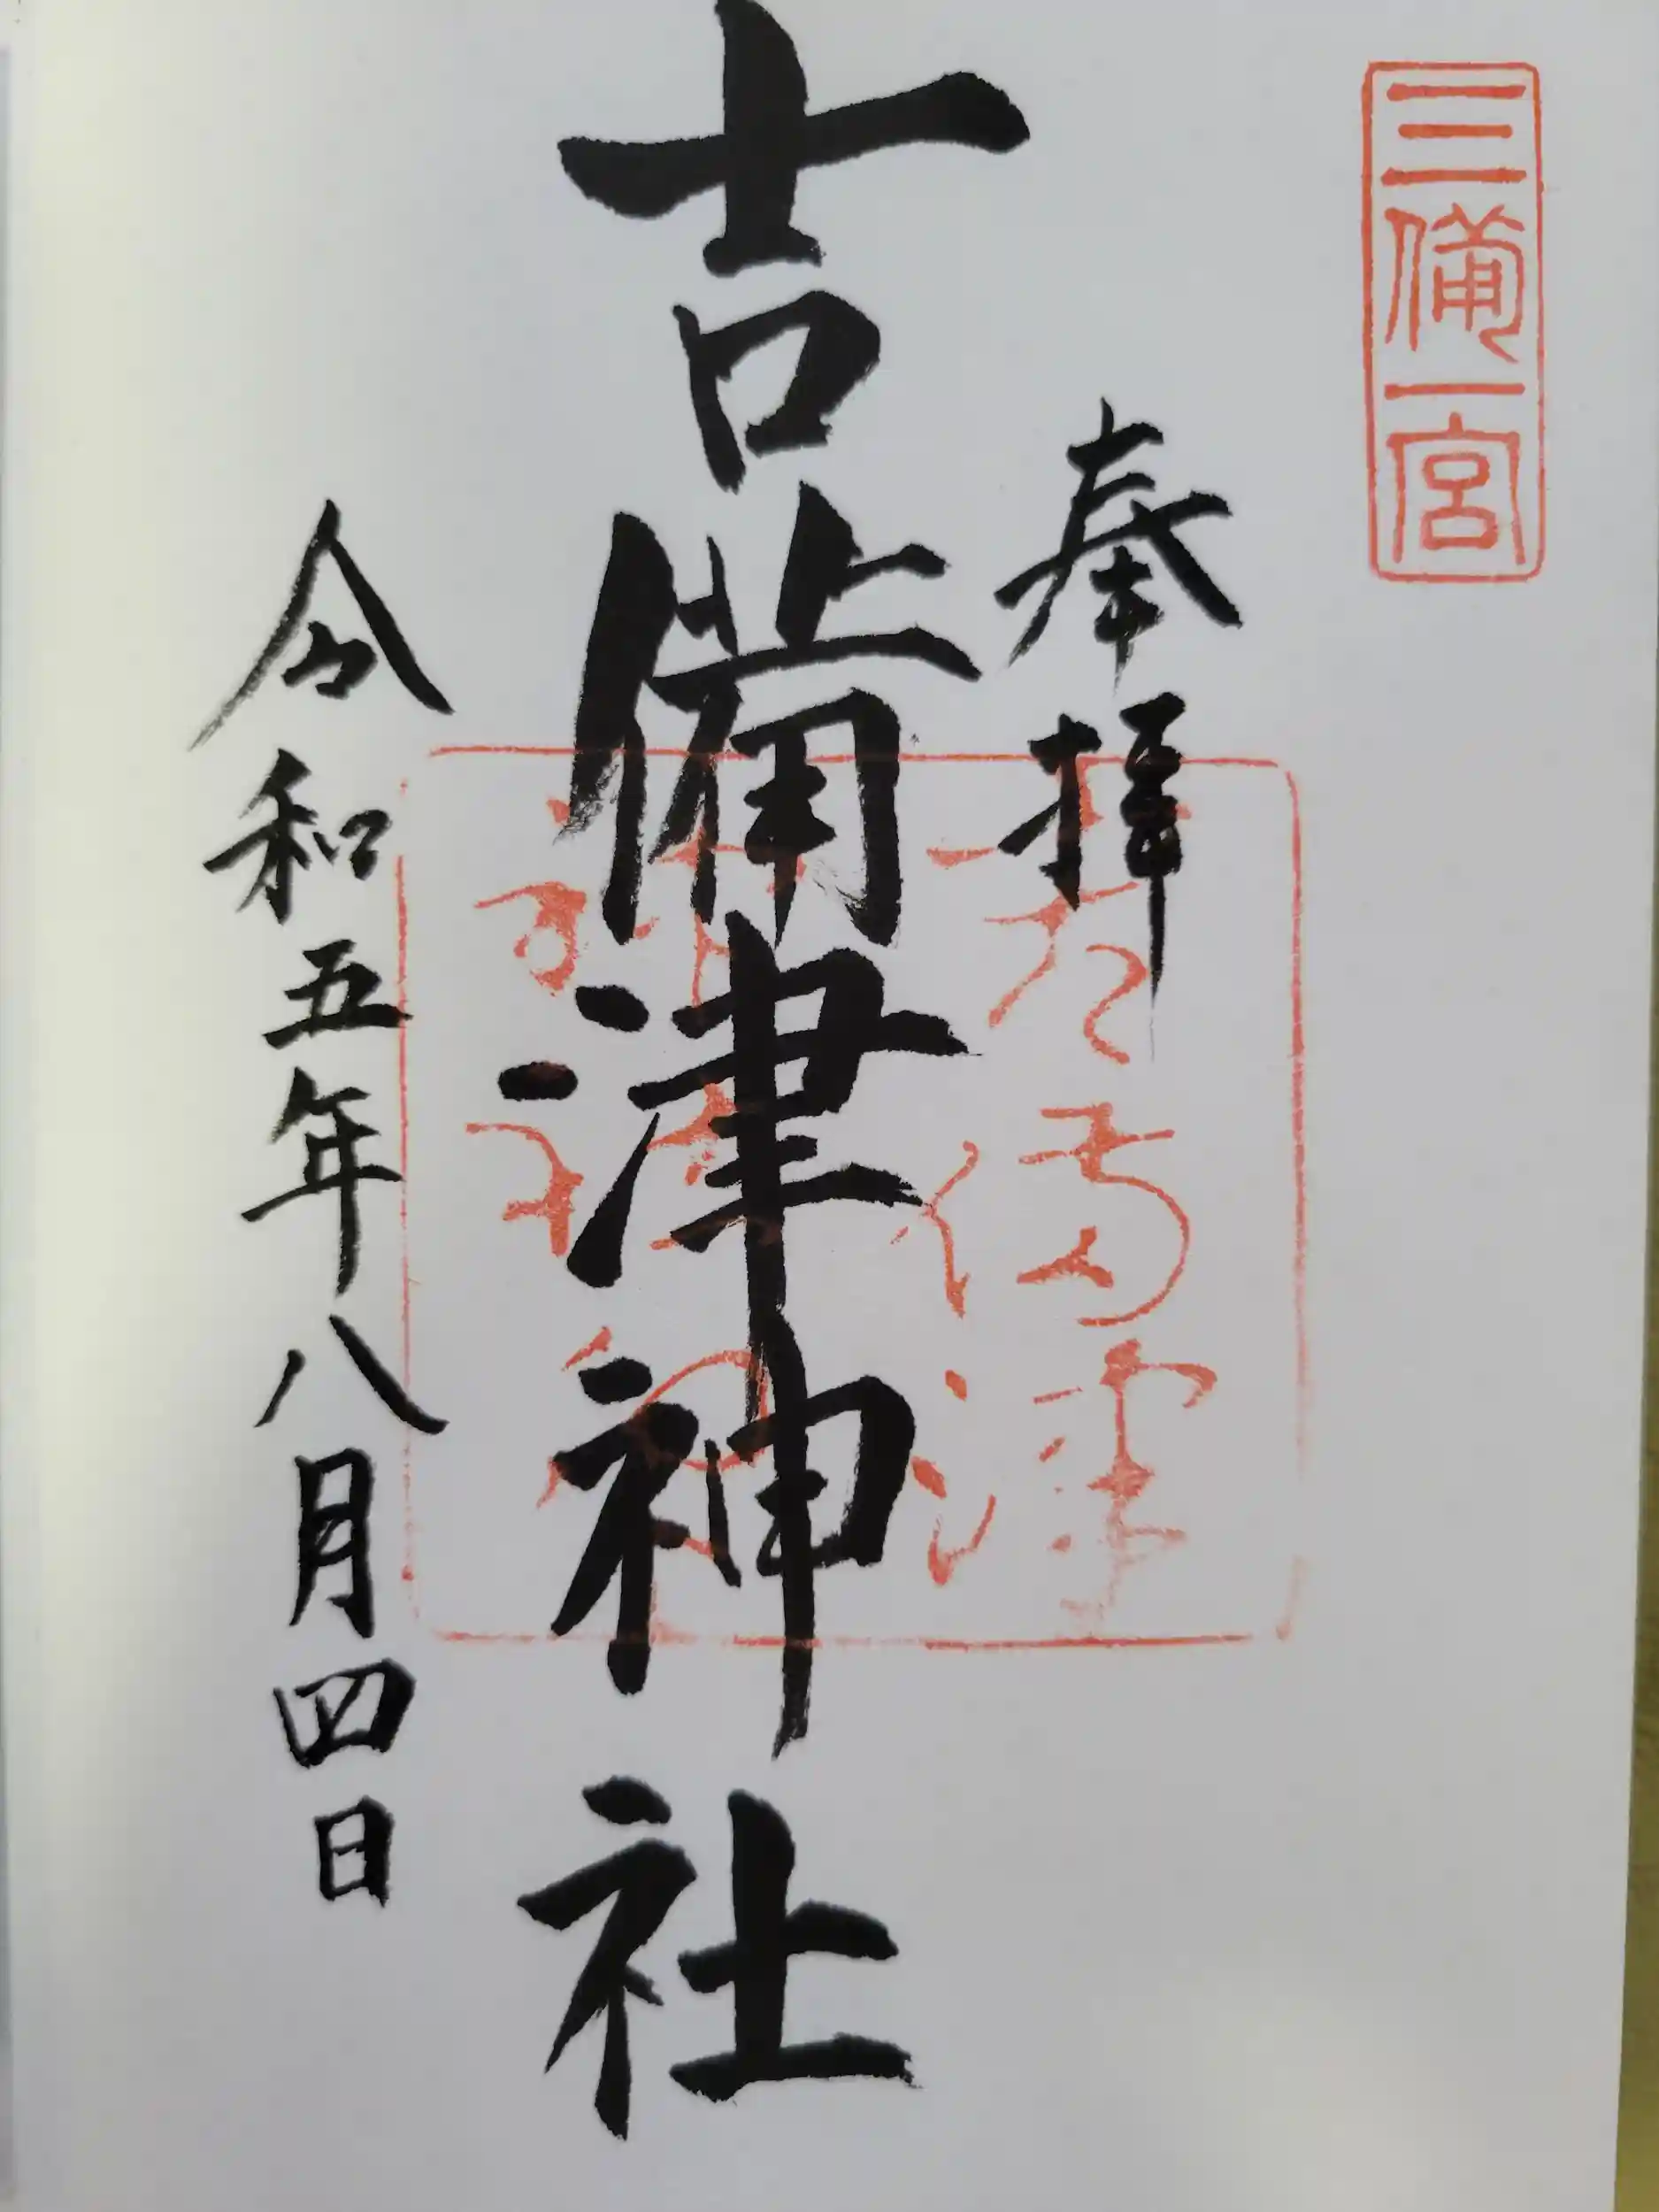 三備一宮
奉拝
吉備津神社
令和五年八月四日